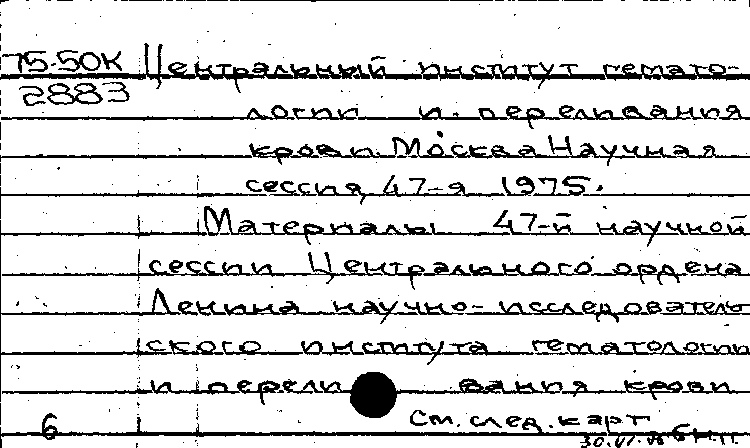 75-50К Центральный институт гемато-
2883
логии и переливания
крови. Москва Научная
сессия, 47-я 1975.
Материалы 47-й научной
сессии Центрального ордена
Ленина научно-исследователь
ского института гематологии
и перели вания крови
6 См. след. карт